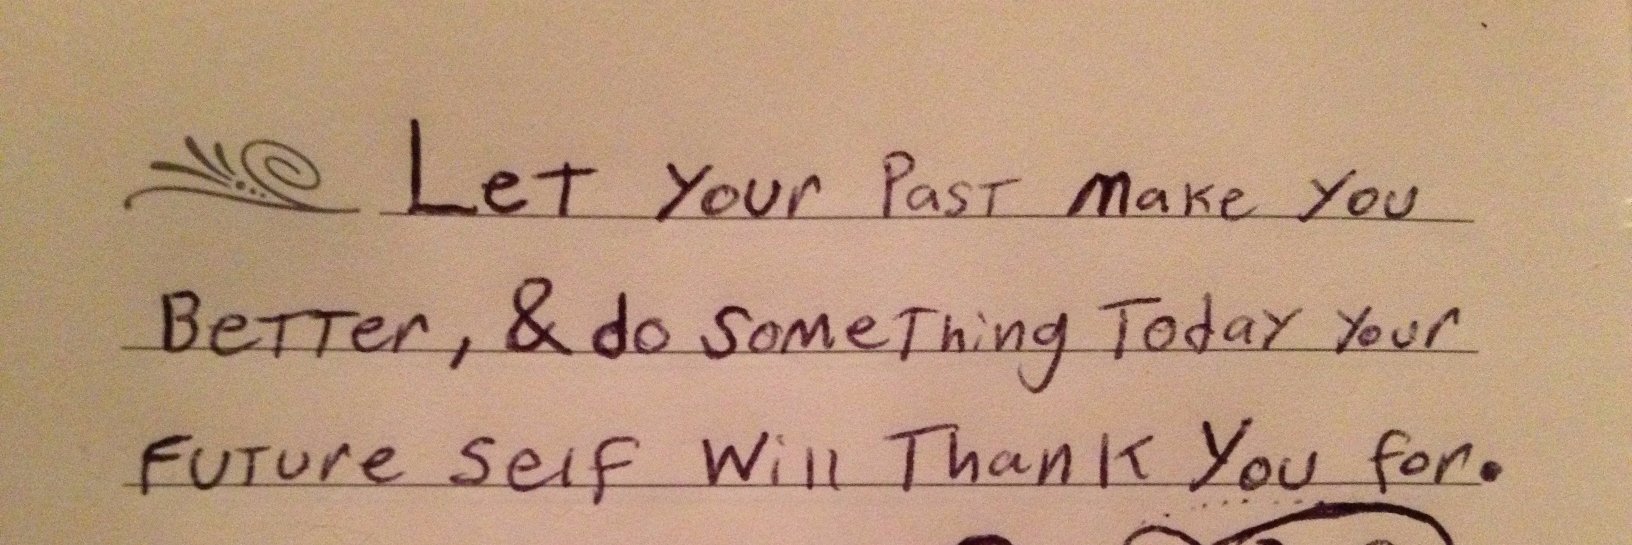 Let Your Past Make You
Better, & do Something Today Your
Future Self Will Thank You for.